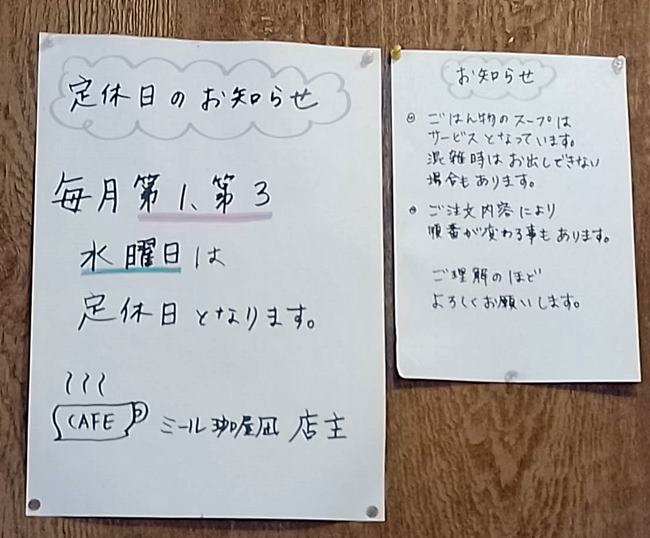 定休日のお知らせ
毎月第1、第3
水曜日は
定休日となります。
CAFE
ミール珈屋凪 店主
お知らせ
ごはん物のスープは
サービスとなっています。
混雑時はお出しできない
場合もあります。
ご注文内容により
順番が変わる事もあります。
ご理解のほど
よろしくお願いします。